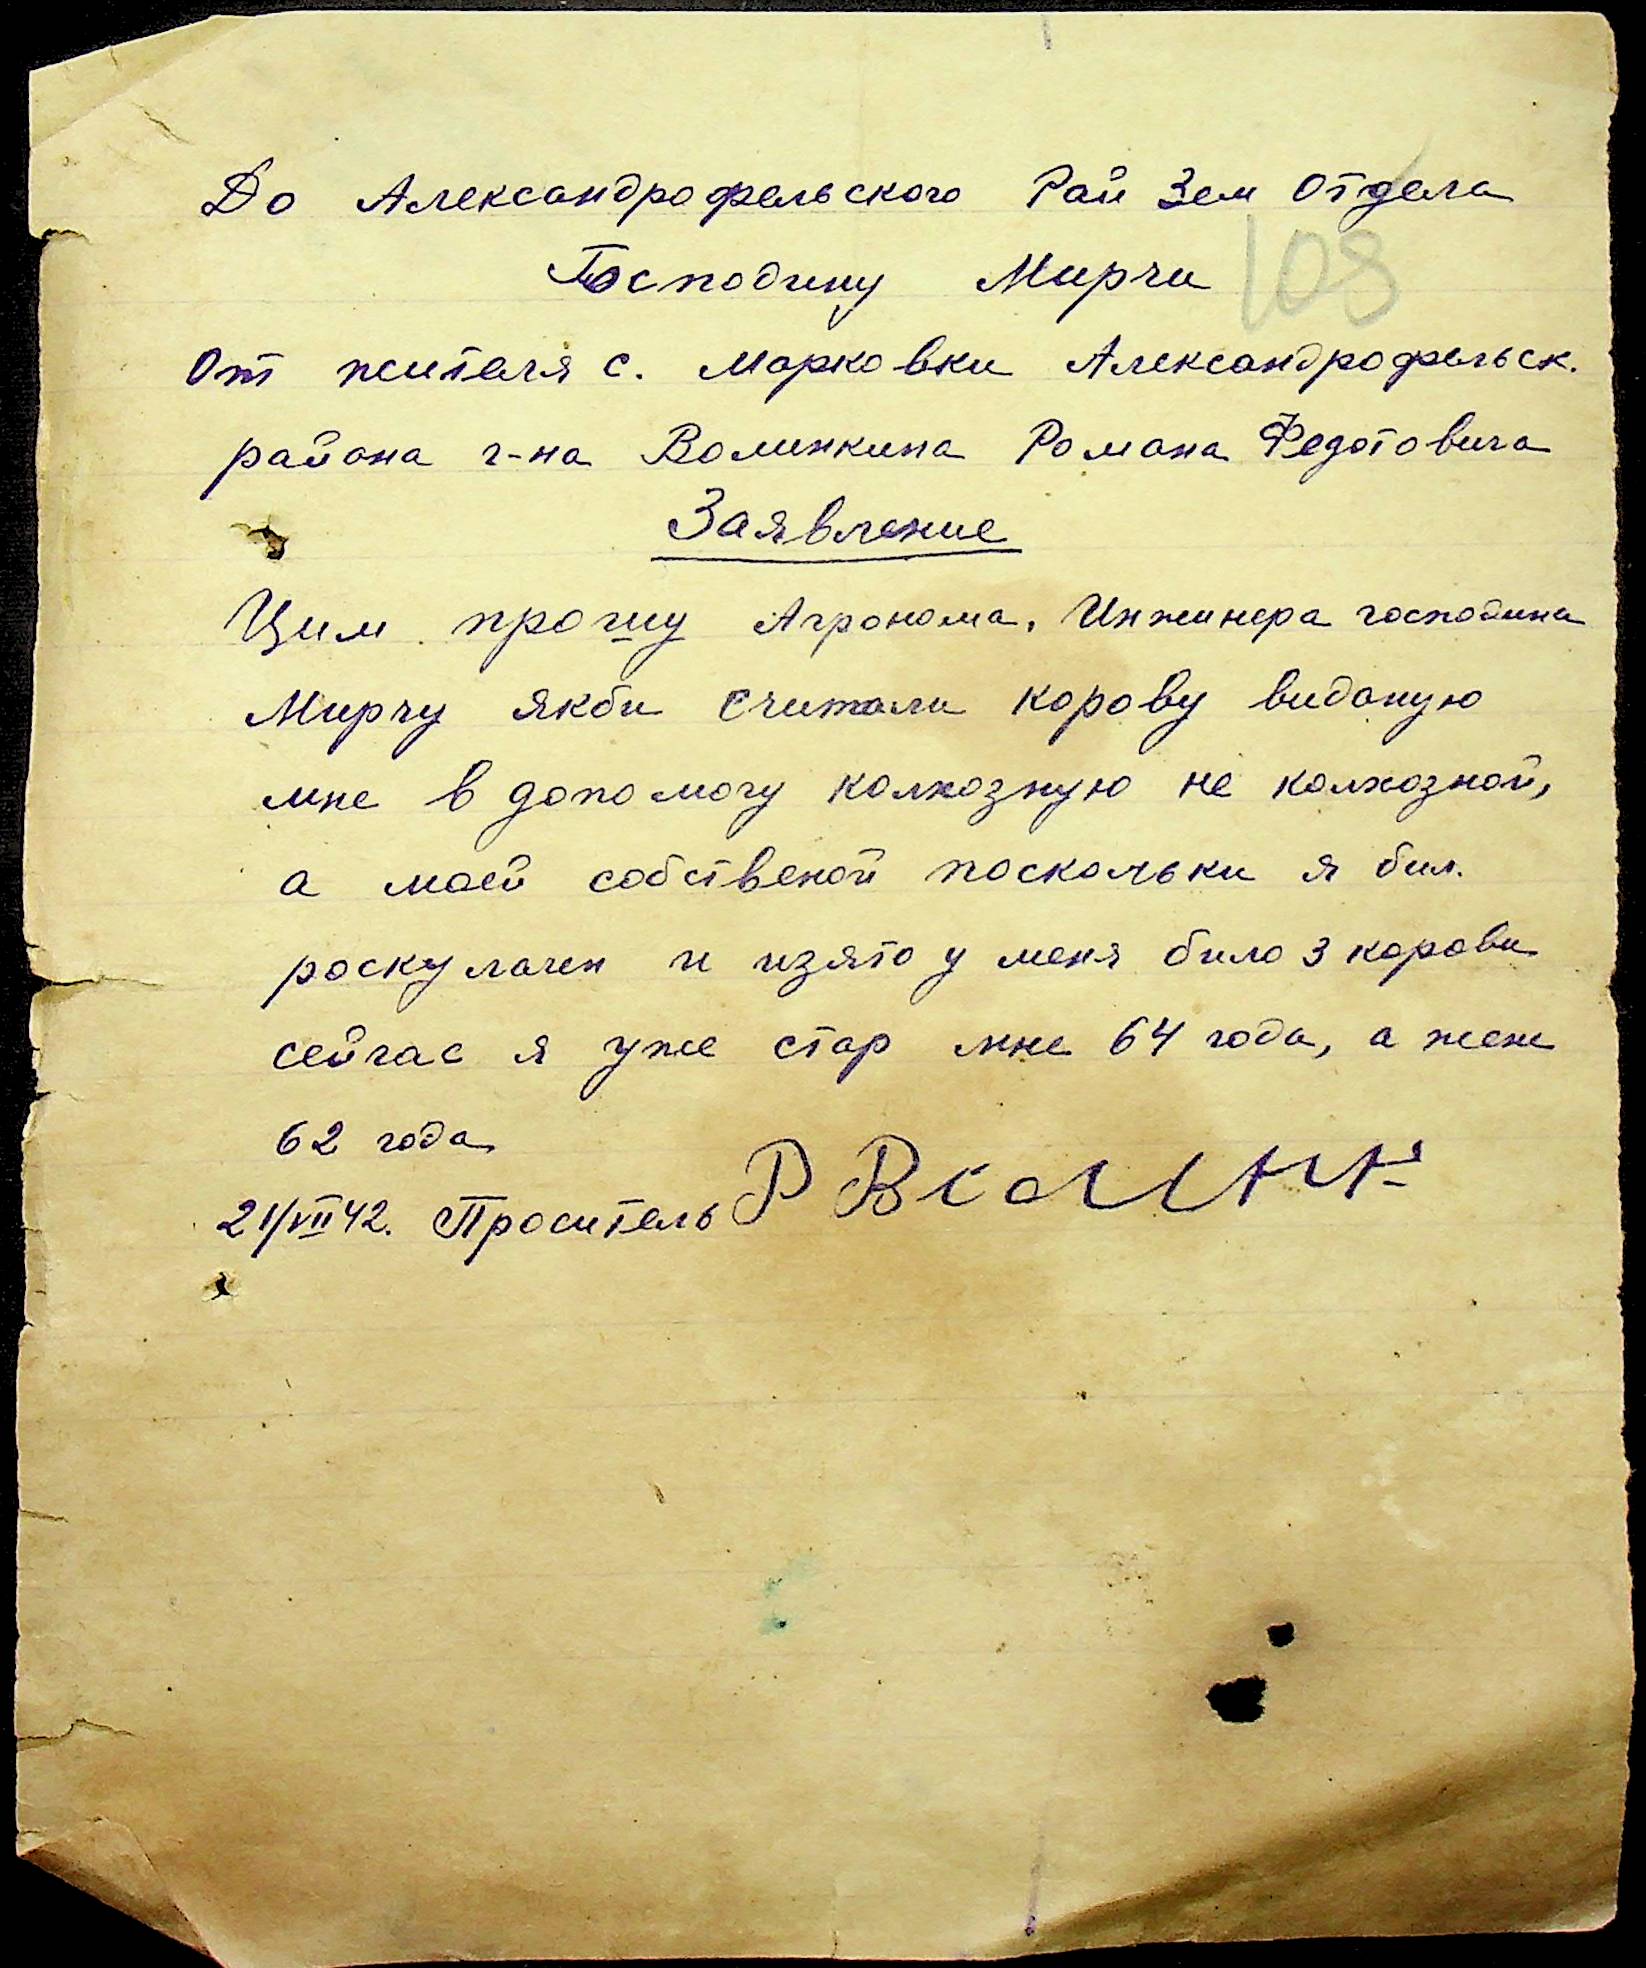 До Александрофельского Рай Зем Отдела
Господину Мирчи
108
От жителя с. Марковки Александрофельск.
района г-на Волинкина Романа Федотовича
Заявление
Цим прошу Агронома, Инжинера господина
Мирчу якби считали корову виданую
мне в допомогу колхозную не колхозной,
а моей собственой поскольки я бил
роскулачен и изято у меня било 3 корови
сейчас я уже стар мне 64 года, а жене
62 года
21/VII 42. Проситель Р